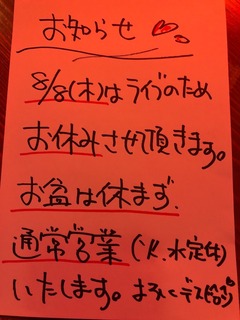 お知らせ
8/8(木)はライブのため
お休みさせて頂きます。
お盆は休まず、
通常営業(火、水定休)
いたします。よろしく